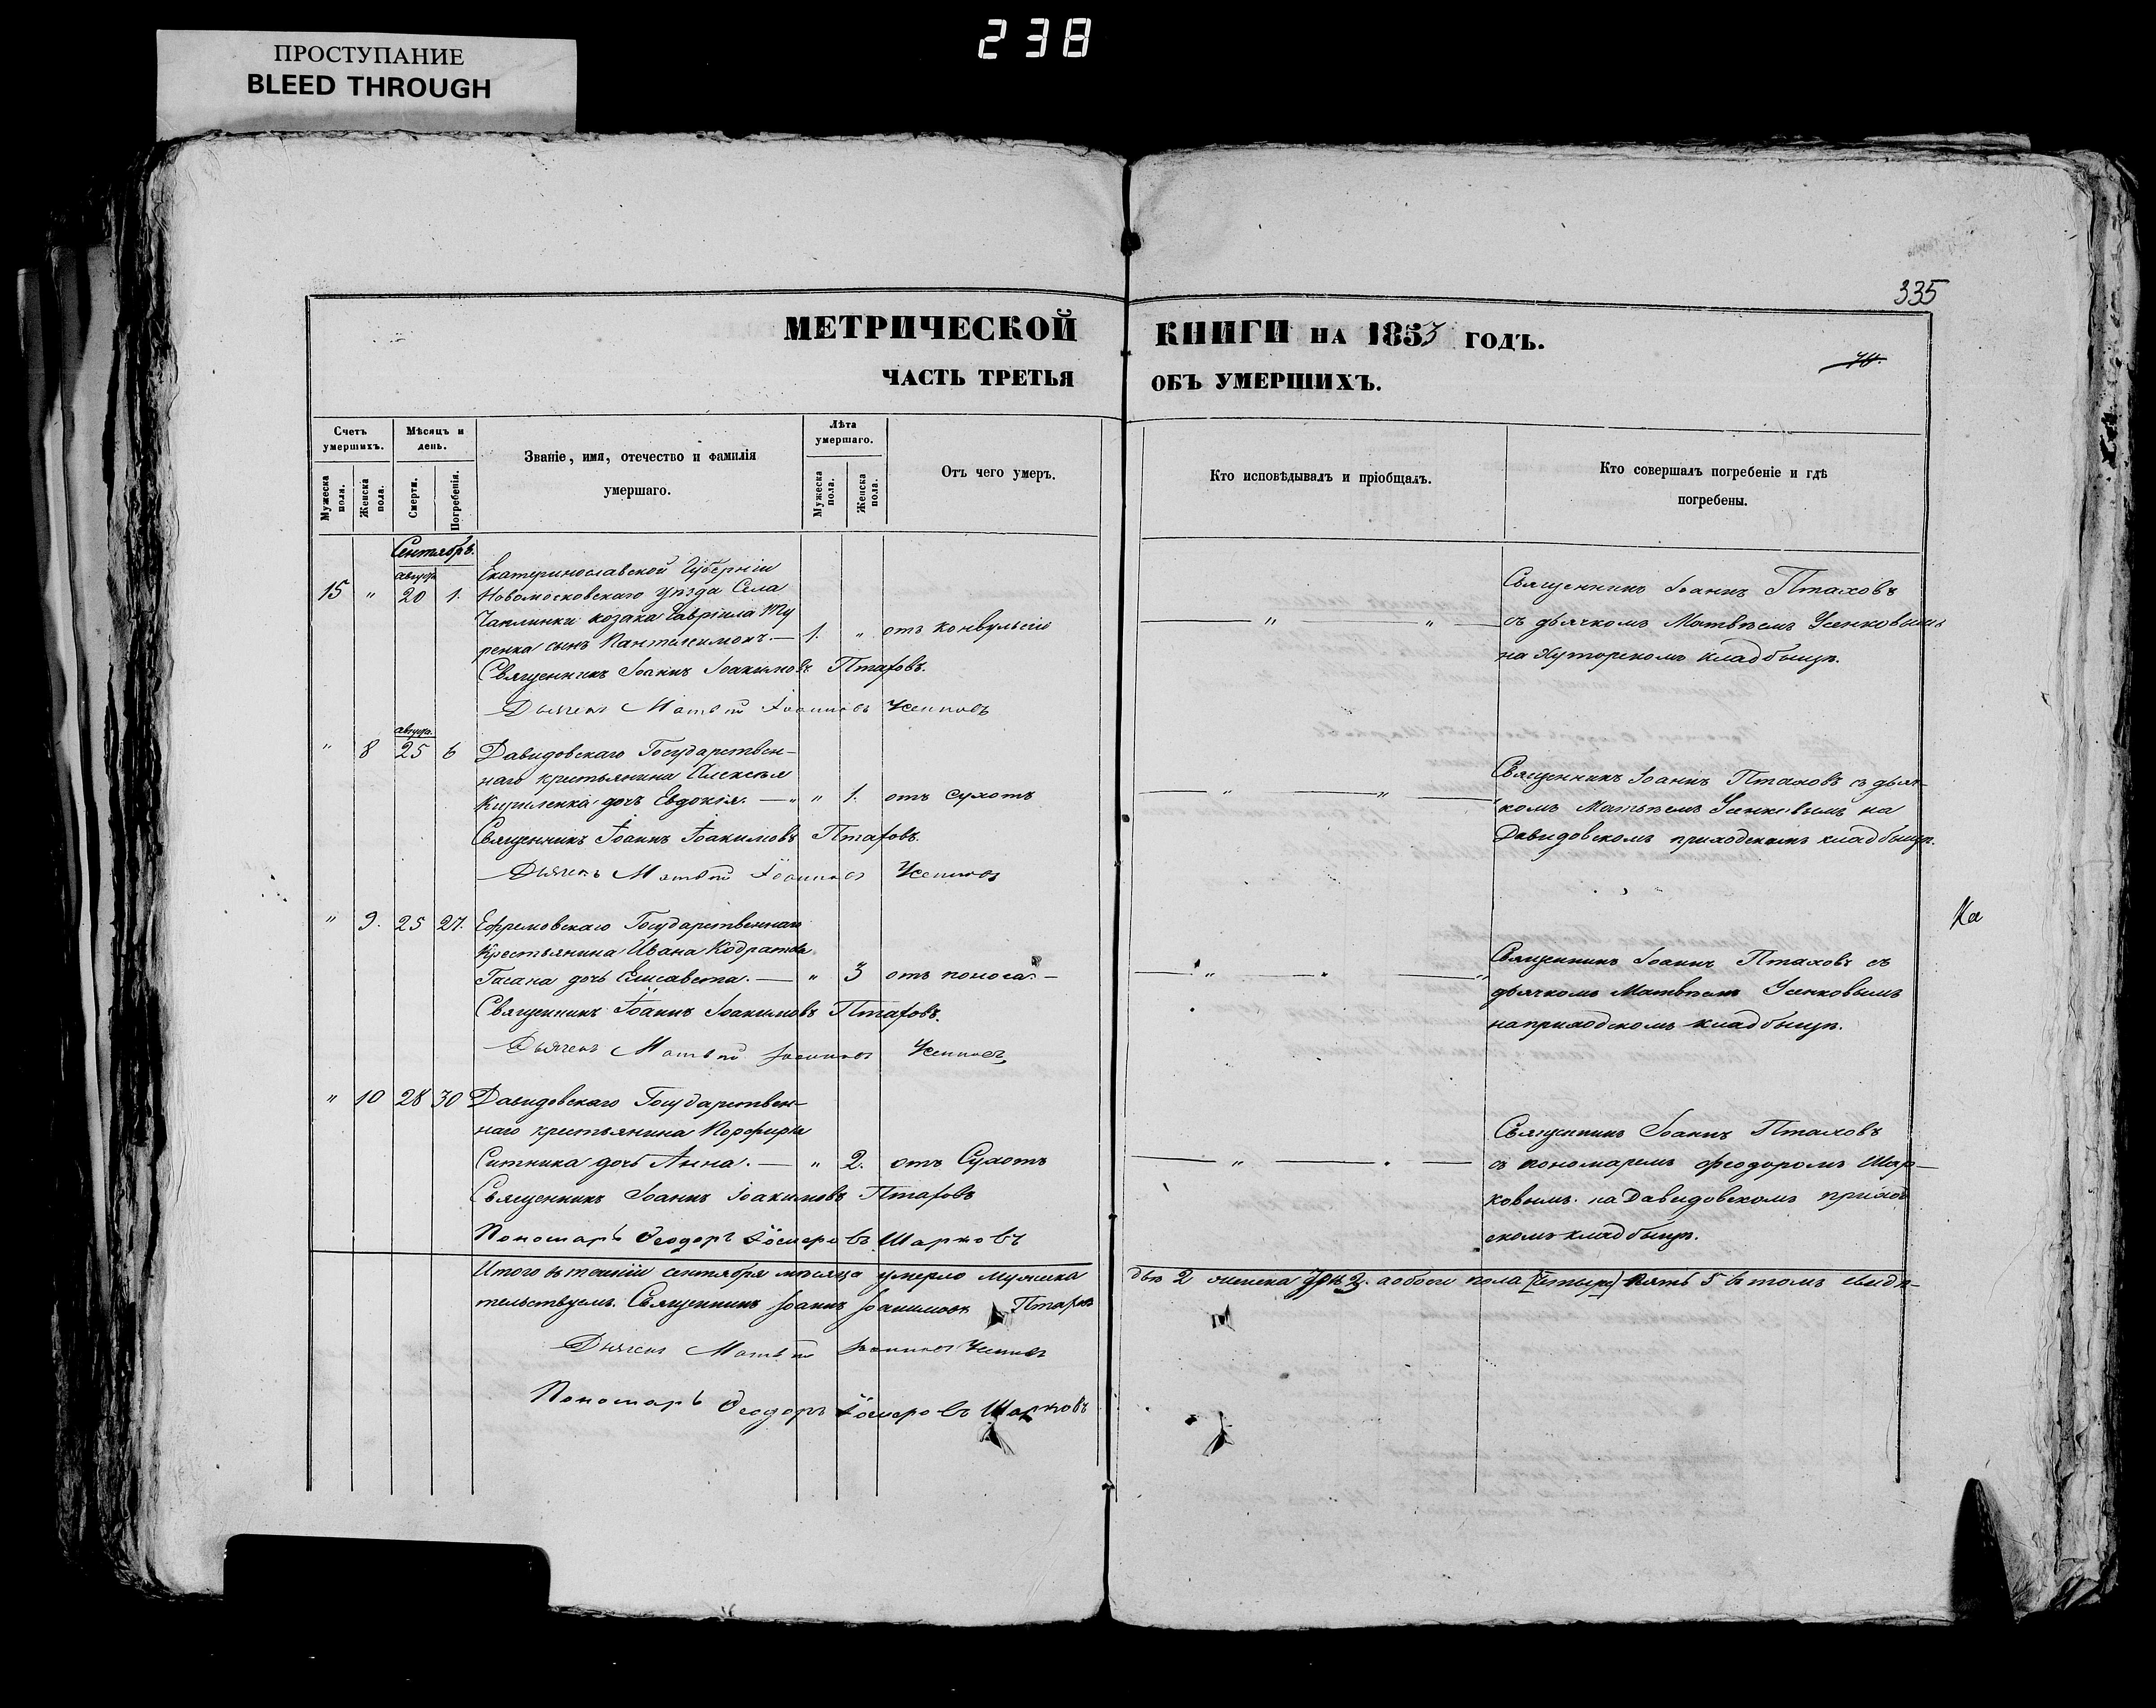 238
ПРОСТУПАНИЕ
BLEED THROUGH
335
МЕТРИЧЕСКОЙ КНИГИ НА 1853 ГОДЪ.
ЧАСТЬ ТРЕТЬЯ ОБЪ УМЕРШИХЪ.
Счетъ умершихъ.
Мужеска пола.
Женска пола.
Мѣсяцъ и день.
Смерти.
Погребенія.
Званіе, имя, отечество и фамилія умершаго.
Лѣта умершаго.
Мужеска пола.
Женска пола.
Отъ чего умеръ.
Кто исповѣдывалъ и пріобщалъ.
Кто совершалъ погребеніе и гдѣ погребены.
Сентябрь.
15 " 20 1. Екатеринославской Губерніи
Новомосковскаго уѣзда Села
козака Гавріила Ту
ренка сынъ Пантелеимонъ. — 1. " отъ конвульсіи
Священникъ Іоаннъ Птаховъ
съ дьячкомъ Матвѣемъ Усенковымъ
на Хуторскомъ кладбищѣ.
Священникъ Іоаннъ Іоакимовъ Птаховъ.
Дьячекъ Матвѣй Іоанновъ Усенковъ
" 8 25 6 Давидовскаго Государствен-
наго крестьянина Алексѣя
Кириленка дочь Евдокія. — " " 1. отъ сухотъ
Священникъ Іоаннъ Птаховъ съ дьяч-
комъ Матвѣемъ Усенковымъ на
Давидовскомъ приходскомъ кладбищѣ.
Священникъ Іоаннъ Іоакимовъ Птаховъ.
Дьячекъ Матвѣй Іоанновъ Усенковъ
" 9. 25 27. Ефремовскаго Государственнаго
Крестьянина Ивана Кодратова
дочь Елисавета. — " 3 отъ поноса. —
Священникъ Іоаннъ Птаховъ съ
дьячкомъ Матвѣемъ Усенковымъ
на приходскомъ кладбищѣ.
Священникъ Іоаннъ Іоакимовъ Птаховъ.
Дьячекъ Матвѣй Іоанновъ Усенковъ
" 10 28 30 Давидовскаго Государствен-
наго крестьянина Порфирія
Ситника дочь Анна. — " 2. отъ Сухотъ
Священникъ Іоаннъ Птаховъ
съ пономаремъ Феодоромъ Шар-
ковымъ на Давидовскомъ приход
скомъ кладбищѣ.
Священникъ Іоаннъ Іоакимовъ Птаховъ
Пономарь Ѳеодоръ Шарковъ
Итого въ теченіи сентября мѣсяца умерло мужеска два 2 женска три 3. а обоего пола (четыре) пять 5 въ томъ свидѣ-
тельствуемъ. Священникъ Іоаннъ Іоакимовъ Птаховъ
Дьячекъ Матвѣй Іоанновъ Усенковъ
Пономарь Ѳеодоръ Шарковъ